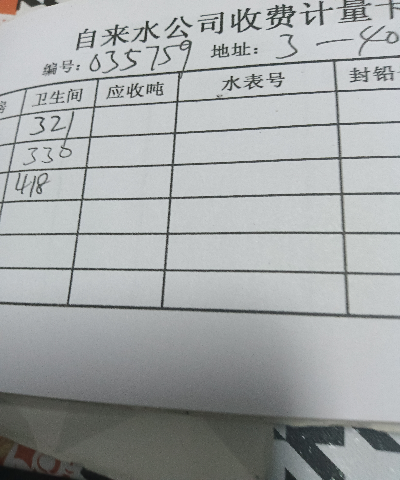 自来水公司收费计量卡
编号: 035759 地址: 3-40
卫生间 应收吨 水表号 封铅
321
330
418